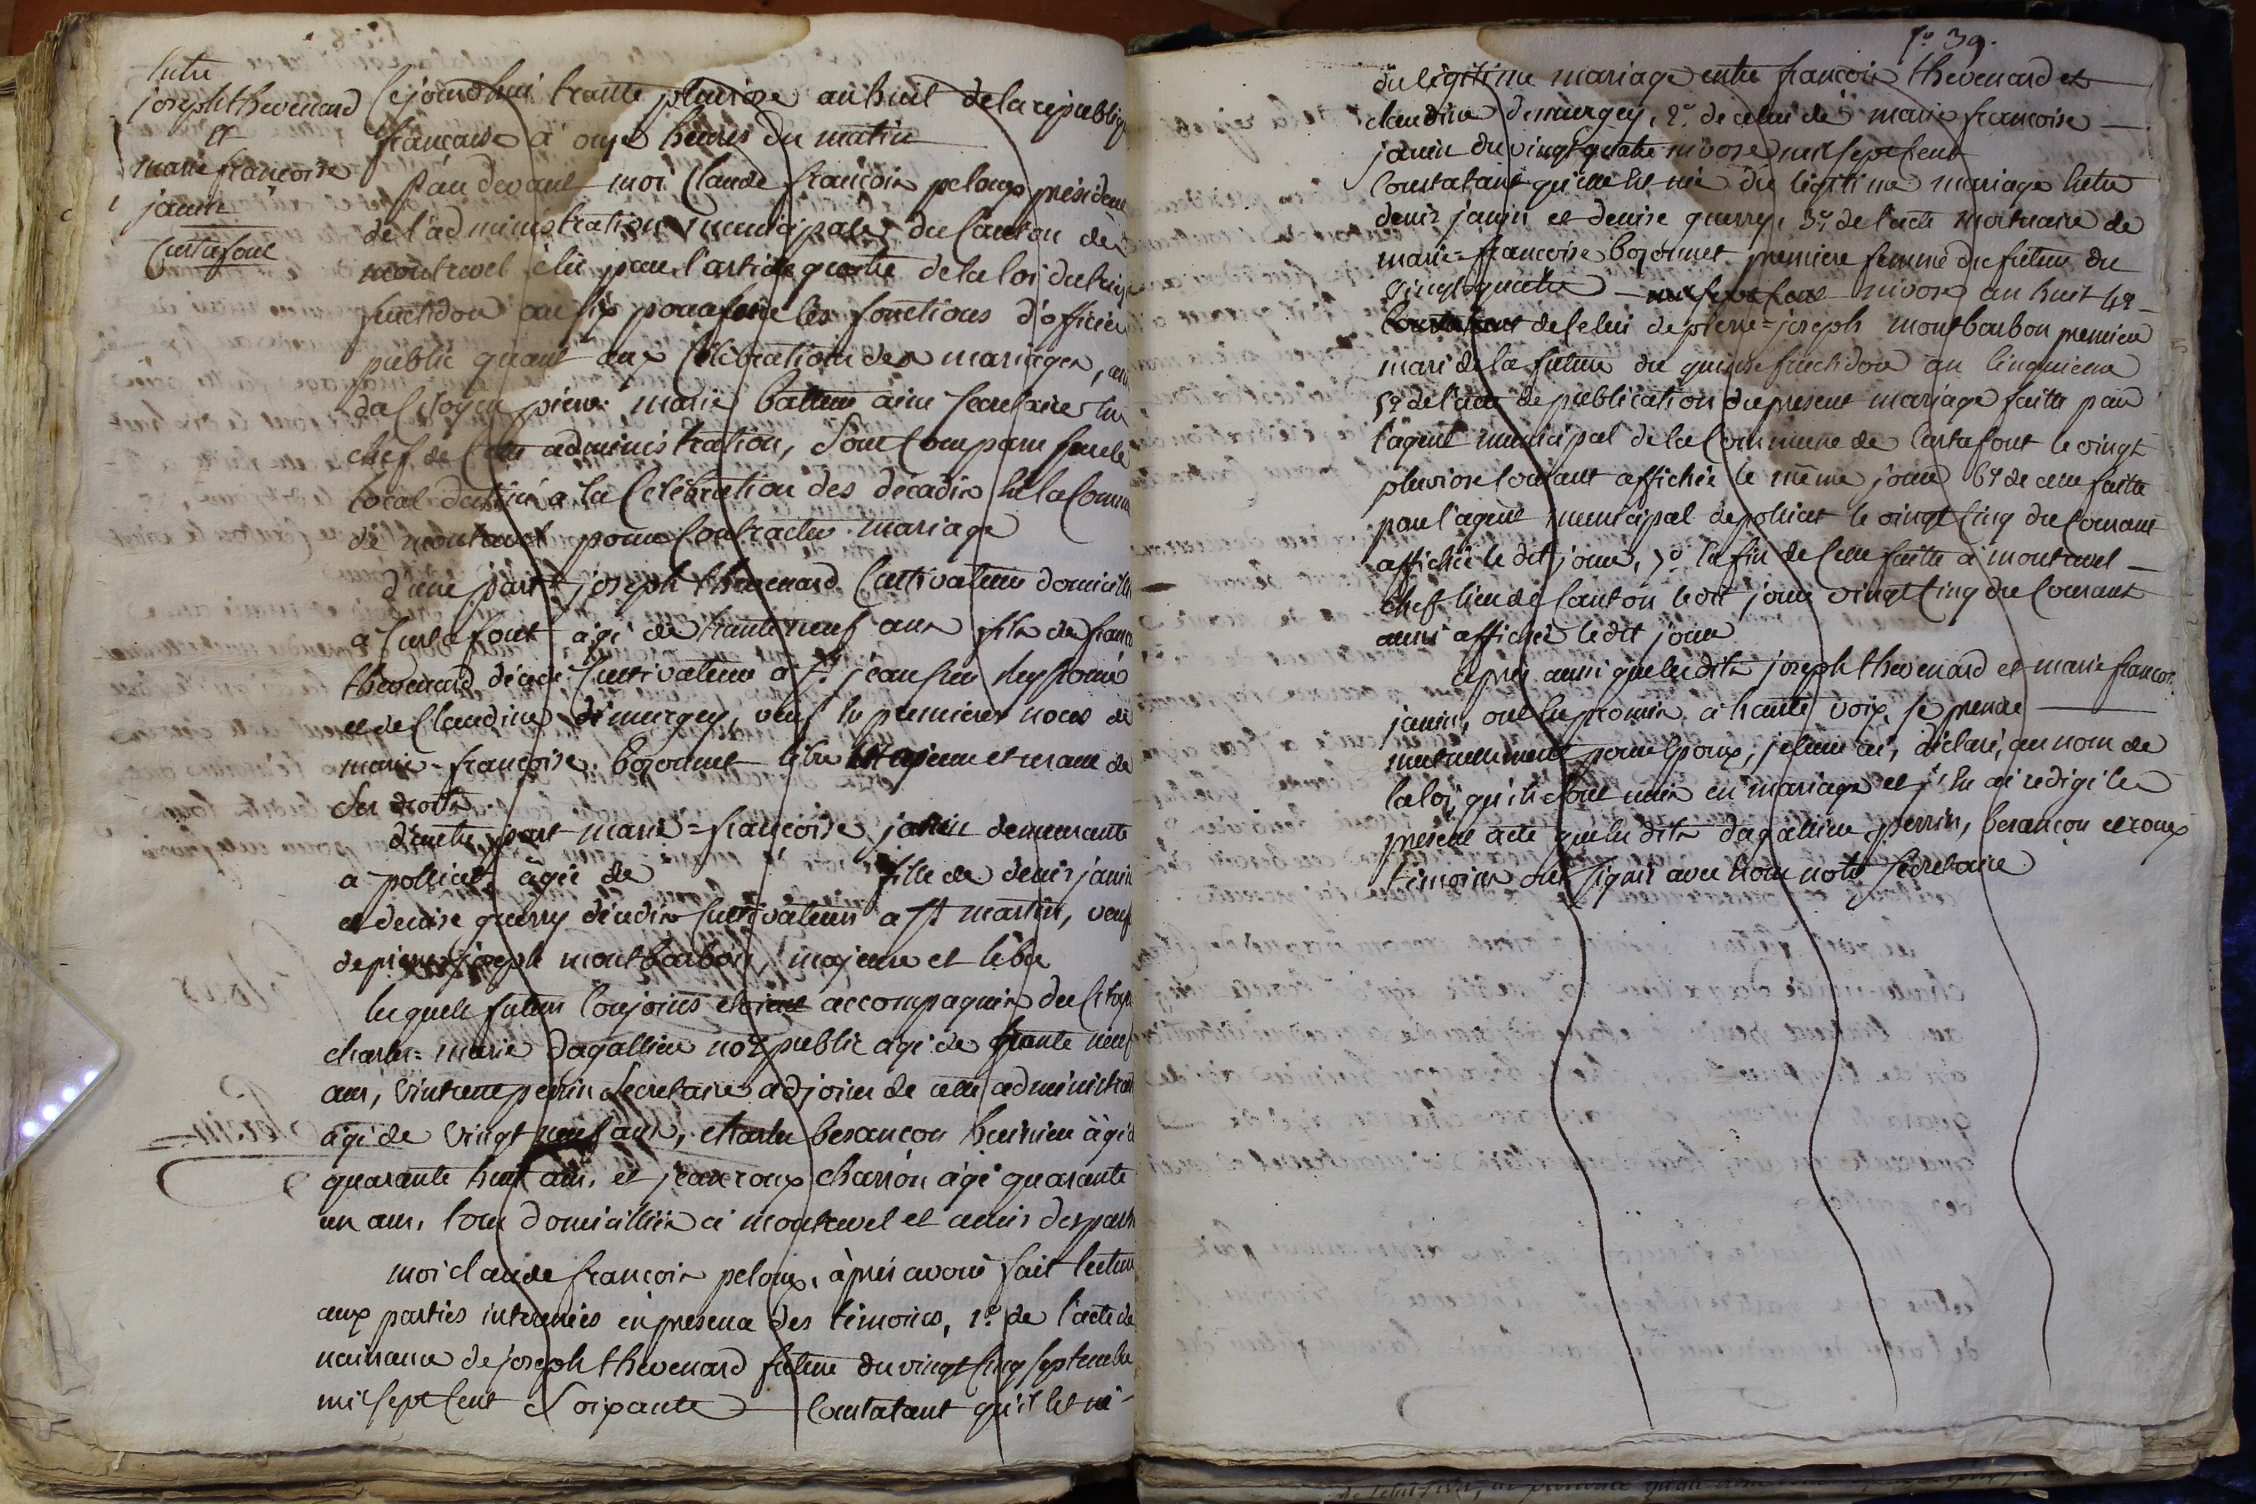 Entre
joseph thevenard
et
marie françoise
janin
Curtafont
Cejourdhui trante pluviose an huit de la republiq
française a onze heures du matin
Pardevant moi Claude françois peloux président
de l'administration municipale du Canton de
montrevel élu par l'article quatre de la loi du treize
fructidor an six pour faire les fonctions d'officier
public quant aux Célébrations des mariages,
du Citoyen pierre marie battur ainé Secretaire en
chef de Cette administration, Sont Comparu Sur le
local destiné a la Célébration des décadis en la Comm
de montrevel pour Contracter mariage
d'une part joseph thevenard Cultivateur domicilié
a Curtafont agé de trante neuf ans fils de franç
thevenard décédé Cultivateur a St jean sur reyssouse
et de Claudine demurgey, veuf en premieres noces de
marie-françoise bozonnet libre et majeur et usant de
Ses droits
d'autre part marie=françoise janin demeurante
a poliat, agée de fille de denis janin
et denise guerry décédés Cultivateurs a St martin, veuf
de pierre joseph montbarbon, majeure et libre
lesquels futurs Conjoints etoient accompagnés du Citoye
charles=marie dagallier not. public agé de trante neuf
ans, Vincent perrin Secretaire adjoint de cette administrat
agé de Vingt neuf ans, charles besançon huissier agé d
quarante huit ans, et jean roux charron agé quarante
un ans, tous domicilliés a montrevel et amis des part
moi claude françois peloux, après avoir fait lecture
aux parties interessées en presence des témoins, 1.° de l'acte de
naissance de joseph thevenard futur du vingt Cinq Septembre
mil Sept Cent Soixante Constatant qu'il est né
f.° 39.
du légitime mariage entre françois thevenard et
claudine demurgey, 2.° de celui de marie françoise
janin du vingt quatre nivose mil Sept Cent
Constatant qu'elle est née du légitime mariage entre
denis janin et denise guerry, 3.° de l'acte mortuaire de
marie=françoise bozonnet premiere femme du futur du
Vingt quatre nivose an huit 4.°
de Celui de pierre=joseph montbarbon premier
mari de la future du quinze fructidor an Cinquieme
5.° de l'acte de publication du present mariage faite par
l'agent municipal de la Commune de Curtafont le vingt
pluviose Courant affichée le même jour 6.° de celle faite
par l'agent municipal de poliat le vingt Cinq du Courant
affichée le dit jour, 7.° enfin de Celle faite a montrevel
chef lieu de Canton le dit jour vingt Cinq du Courant
aussi affichée le dit jour
après aussi que les dits joseph thevenard et marie françoi.
janin, ont eu promis a haute voix, se prendre
mutuellement pour Epoux, je leur ai, déclaré, au nom de
la loi, qu'ils Sont unis en mariage et j'en ai redigé le
present acte que les dits dagallier, perrin, besançon et roux
témoins ont Signés avec nous notre Secretaire